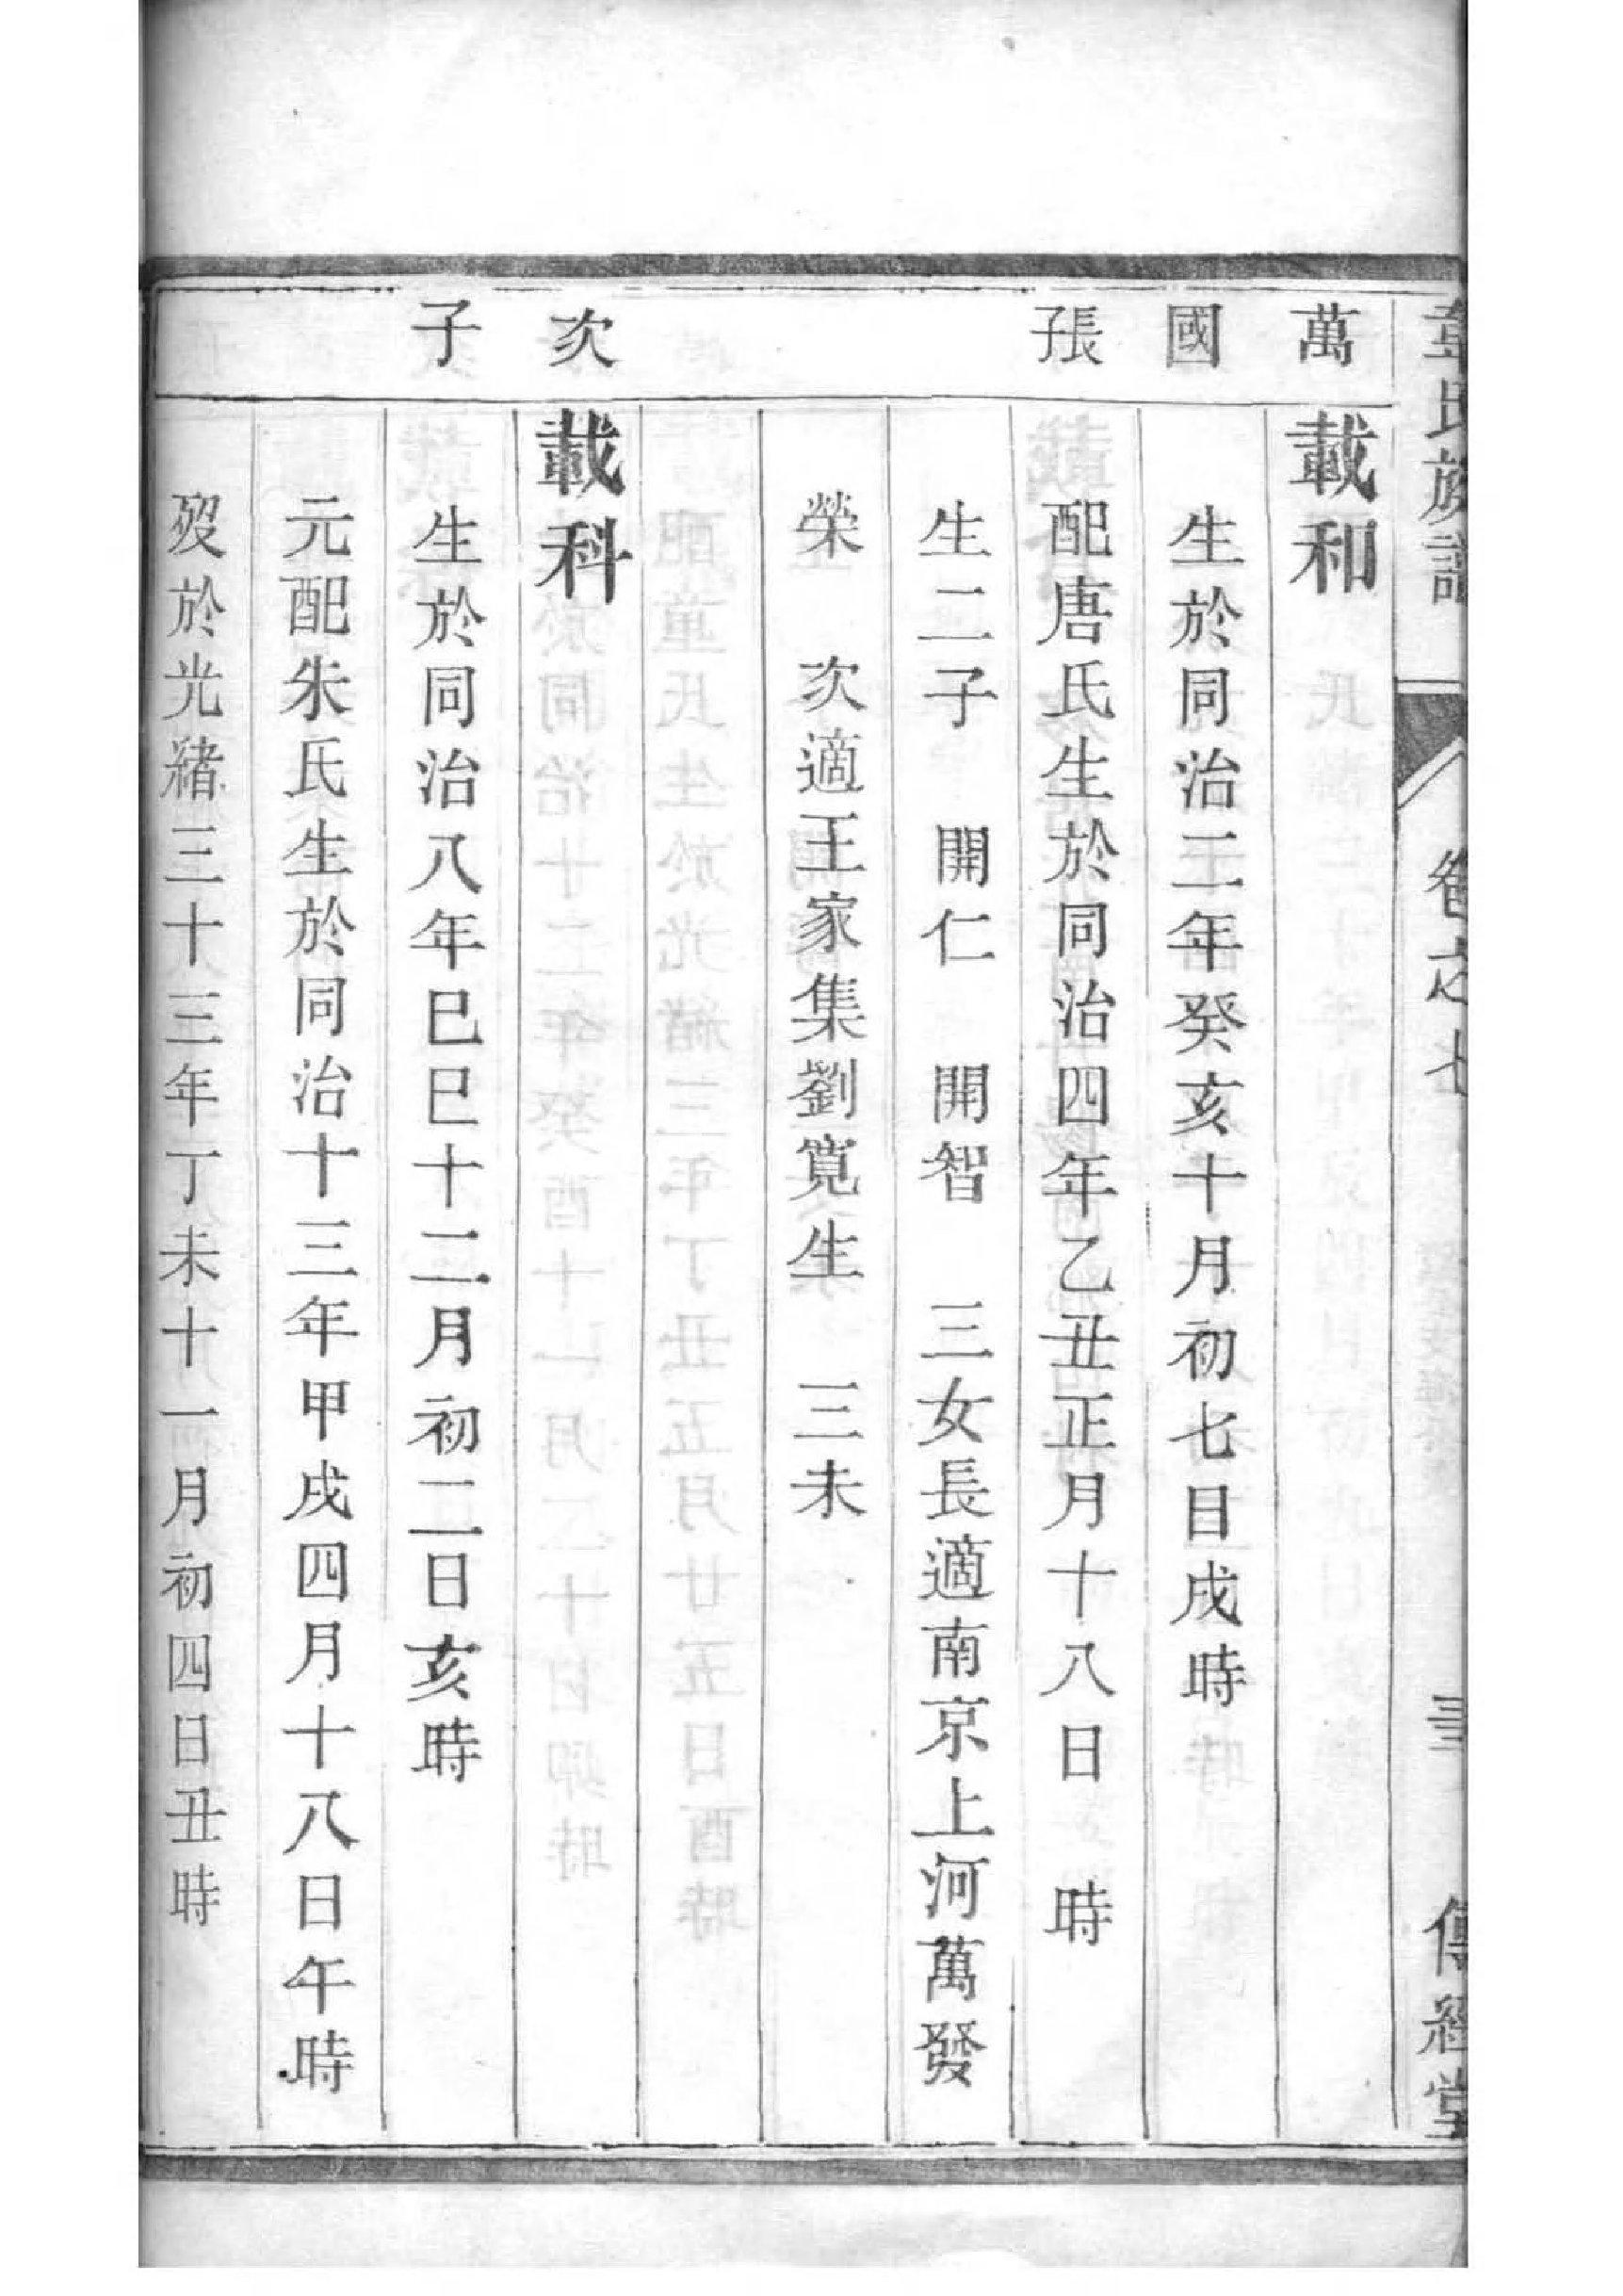 章氏族譜 卷之七 傳經堂
萬 載和
國 生於同治二年癸亥十月初七目戌時
張子 配唐氏生於同治四年乙丑正月十八日 時
生二子 開仁 開智 三女長適南京上河萬發
榮 次適王家集劉寬生 三未
次 載科
子 生於同治八年巳巳十二月初二日亥時
元配朱氏生於同治十三年甲戌四月十八日午時
歿於光緒三十三年丁未十一月初四日丑時